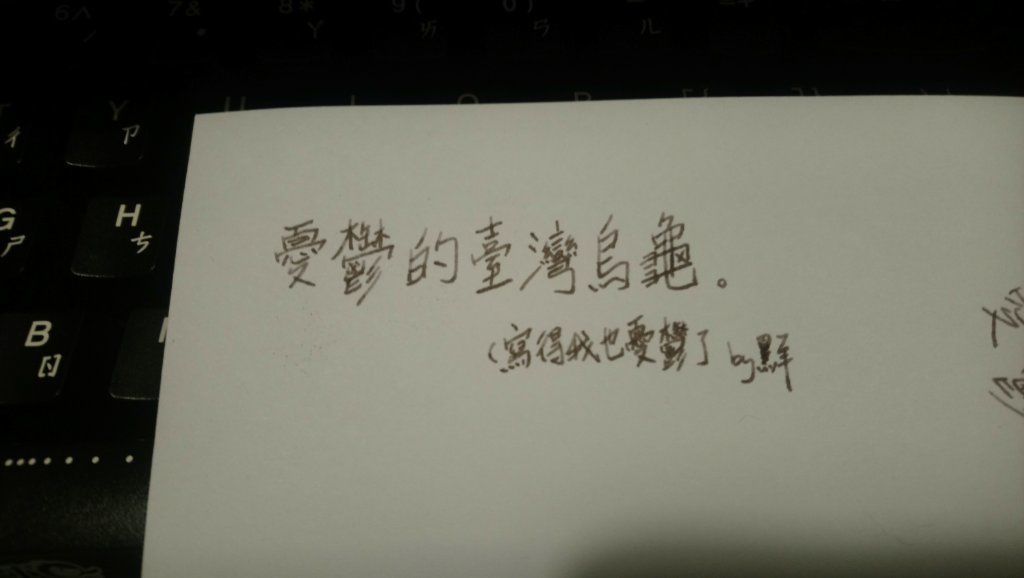 6 ^
7 &
8 * ㄚ
9 ( ㄞ
0 ) ㄢ
ㄦ
Y ㄗ
G ㄕ
H ㄘ
B ㄖ
憂鬱的臺灣烏龜。
(寫得我也憂鬱了 by